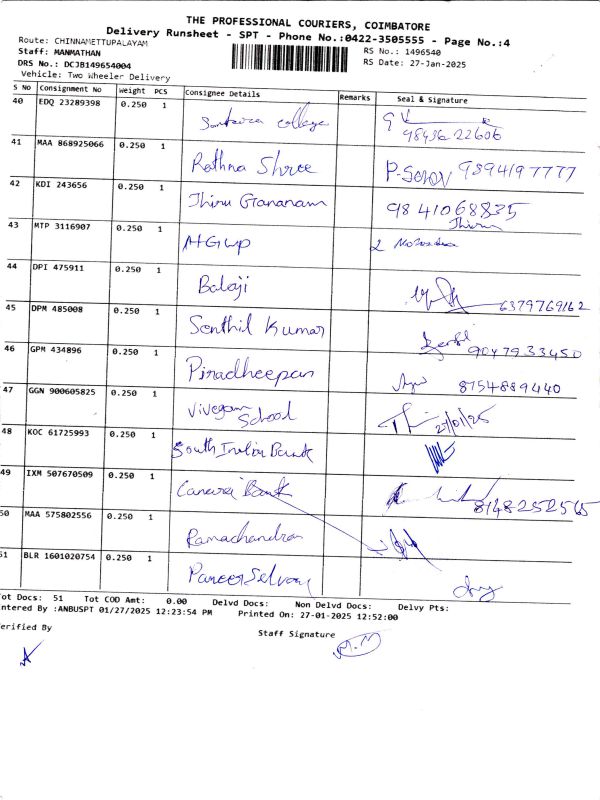 THE PROFESSIONAL COURIERS, COIMBATORE
Delivery Runsheet - SPT - Phone No.:0422-3505555 - Page No.:4
Route: CHINNAMETTUPALAYAM
RS No.: 1496540
Staff: MANMATHAN
RS Date: 27-Jan-2025
DRS No.: DCJB149654004
Vehicle: Two Wheeler Delivery
S No Consignment No Weight PCS Consignee Details Remarks Seal & Signature
40 EDQ 23289398 0.250 1 college 98436 22606
41 MAA 868925066 0.250 1 Rathna Shree 9894197777
42 KDI 243656 0.250 1 Thiru Gananam 98 41068835
43 MTP 3116907 0.250 1
44 DPI 475911 0.250 1 Balaji 6379769162
45 DPM 485008 0.250 1 Senthil Kumar 9047933450
46 GPM 434896 0.250 1 Piradheepan 8754889440
47 GGN 900605825 0.250 1 Vivegam School 27/01/25
48 KOC 61725993 0.250 1 South Indian Bank
49 IXM 507670509 0.250 1 Canara Bank 8148252565
50 MAA 575802556 0.250 1 Ramachandran
51 BLR 1601020754 0.250 1 PaneerSelvam
Tot Docs: 51 Tot COD Amt: 0.00 Delvd Docs: Non Delvd Docs: Delvy Pts:
Entered By :ANBUSPT 01/27/2025 12:23:54 PM Printed On: 27-01-2025 12:52:00
Verified By
Staff Signature